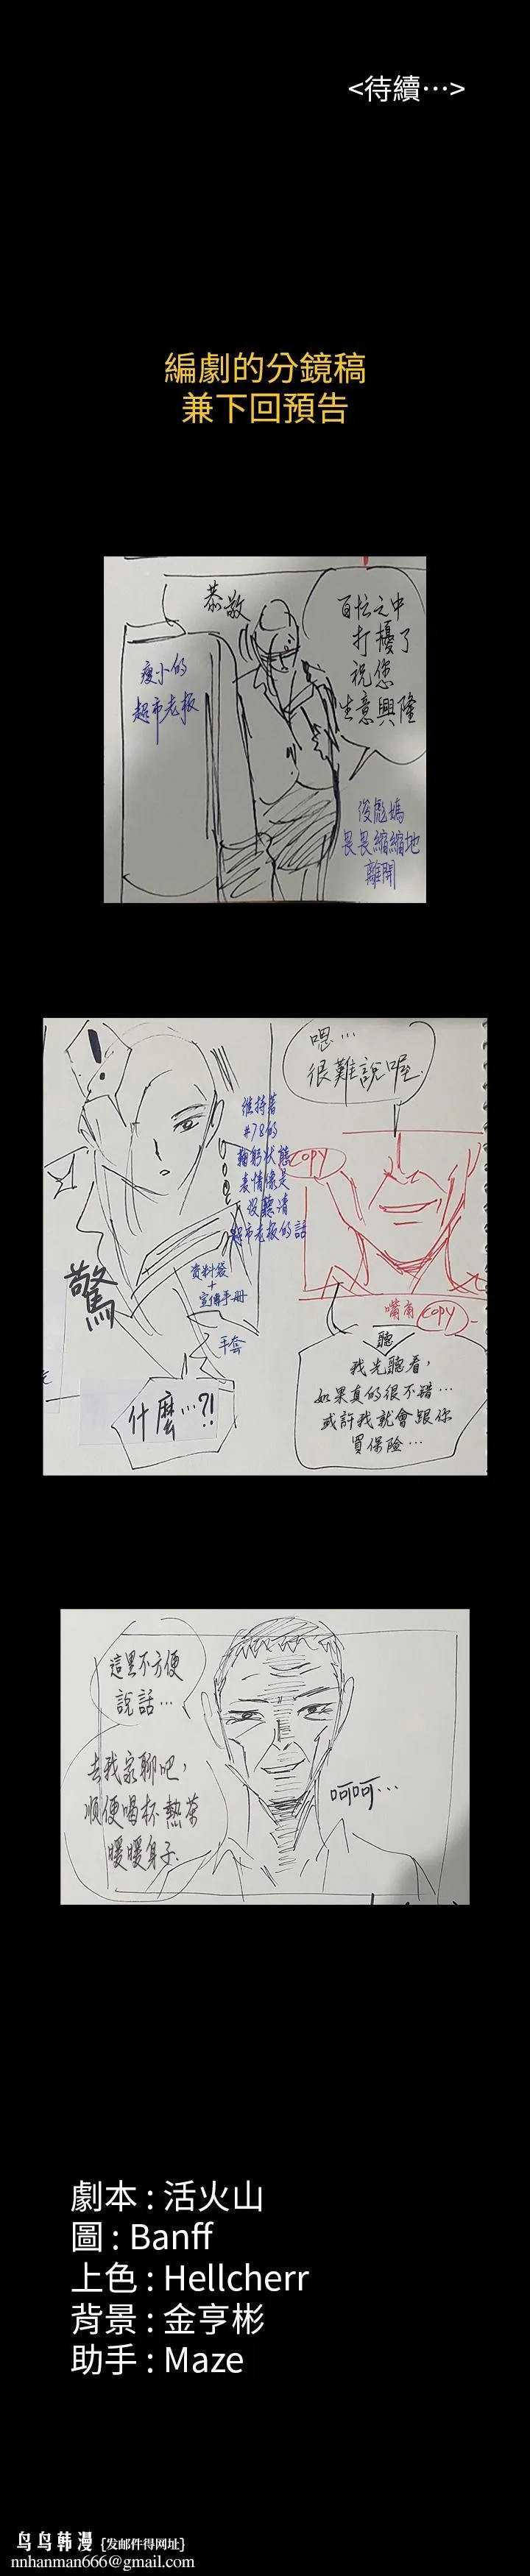 <待續⋯>
編劇的分鏡稿
兼下回預告
恭敬
百忙之中
打擾了
祝您
生意興隆
瘦小的
超市老板
俊彪媽
畏畏縮縮地
離開
嗯…
很難說喔.
維持著
#78的
鞠躬狀態
表情像是
沒聽清
超市老板的話
COPY
资料袋
+
宣傳手冊
手套
驚
什麼…?!
嘴角 COPY
聽
我先聽看，
如果真的很不錯…
或許我就會跟你
買保險…
這里不方便
說話…
去我家聊吧，
順便喝杯熱茶
暖暖身子.
呵呵…
劇本 : 活火山
圖 : Banff
上色 : Hellcherr
背景 : 金亨彬
助手 : Maze
鸟鸟韩漫 {发邮件得网址}
nnhanman666@gmail.com